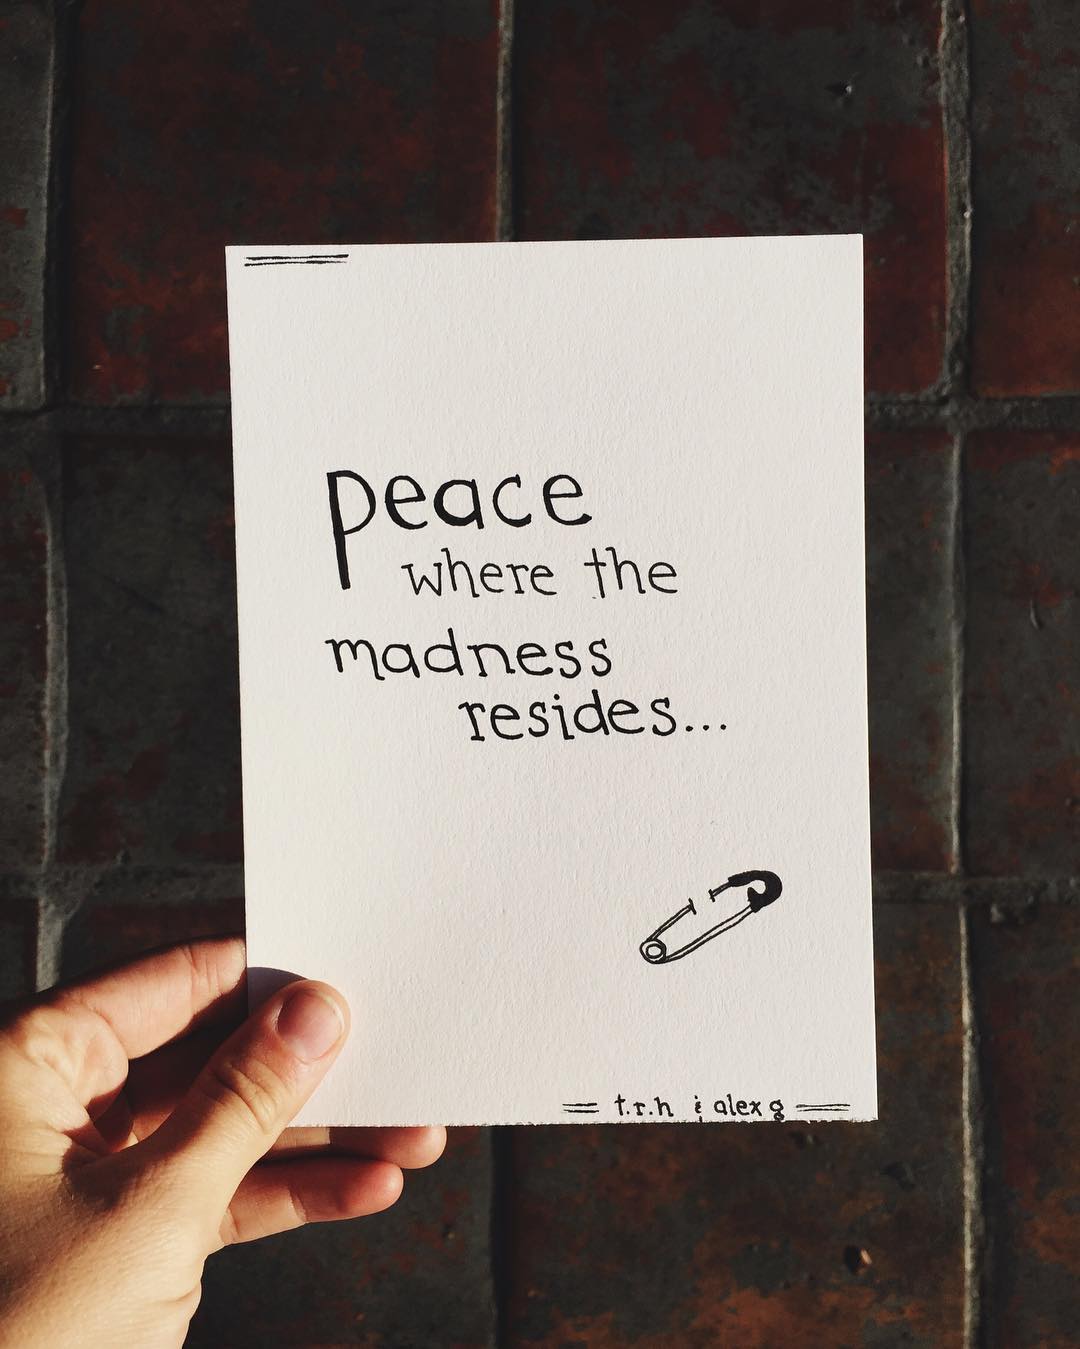 peace
where the
madness
resides...
t.r.h & alex g